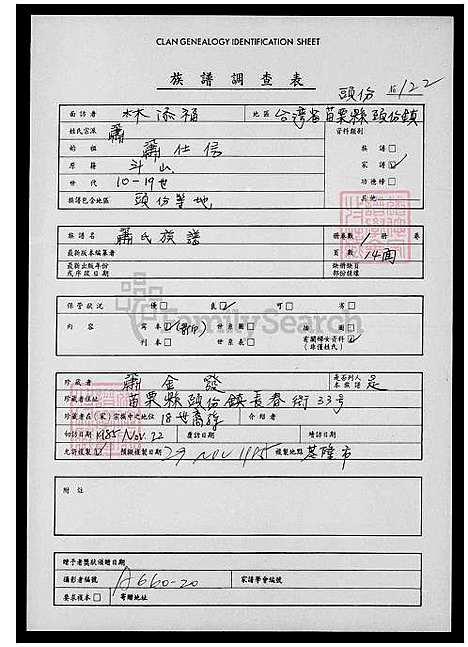 CLAN GENEALOGY IDENTIFICATION SHEET
族譜調查表
頭份 16/22
面訪者 林添福 地區 台灣省苗栗縣頭份鎮
姓氏宗派 蕭 資料類別
始祖 蕭仕信 族譜□
原籍 斗山 家譜☑
世代 10-19世 功德榜□
族譜包含地區 頭份等地 其他
族譜名 蕭氏族譜 冊卷數 1 冊 卷
最新版本編纂者 頁數 14面
最新出版年份或序跋日期 缺冊缺頁部份註增
保管狀況 優□ 良☑ 可□ 劣□
內容 寫本☑(影印) 世系圖□ 插圖□
刊本□ 世系表□ 有關婦女資料☑(非僅姓氏)
FamilySearch
珍藏者 蕭金發 是否列入本族譜 是
珍藏者住址 苗栗縣頭份鎮長春街33号
珍藏者在(家)宗族中之地位 18世裔孫 介紹者
初訪日期 1985 Nov. 22 覆訪日期 續訪日期
允許複製☑ 預擬複製日期 29 NOV 1985 複製地點 基隆市
附註
贈予者獎狀頒贈日期
攝影者編號 A660-20 家譜學會編號
要求複本□ 寄贈地址